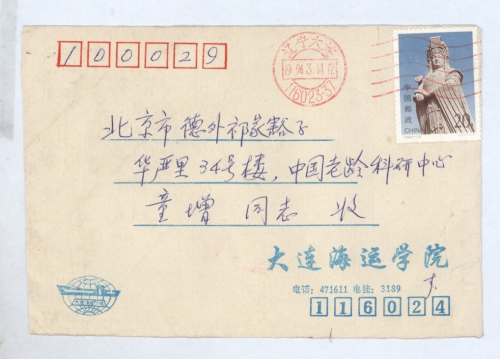 100029
辽宁大连
94.3.11.17
116023-37
中国邮政
20
CHINA
北京市德外祁家豁子
华严里34号楼,中国老龄科研中心
童增 同志 收
大连海运学院
电话:471611 电挂:3189
116024